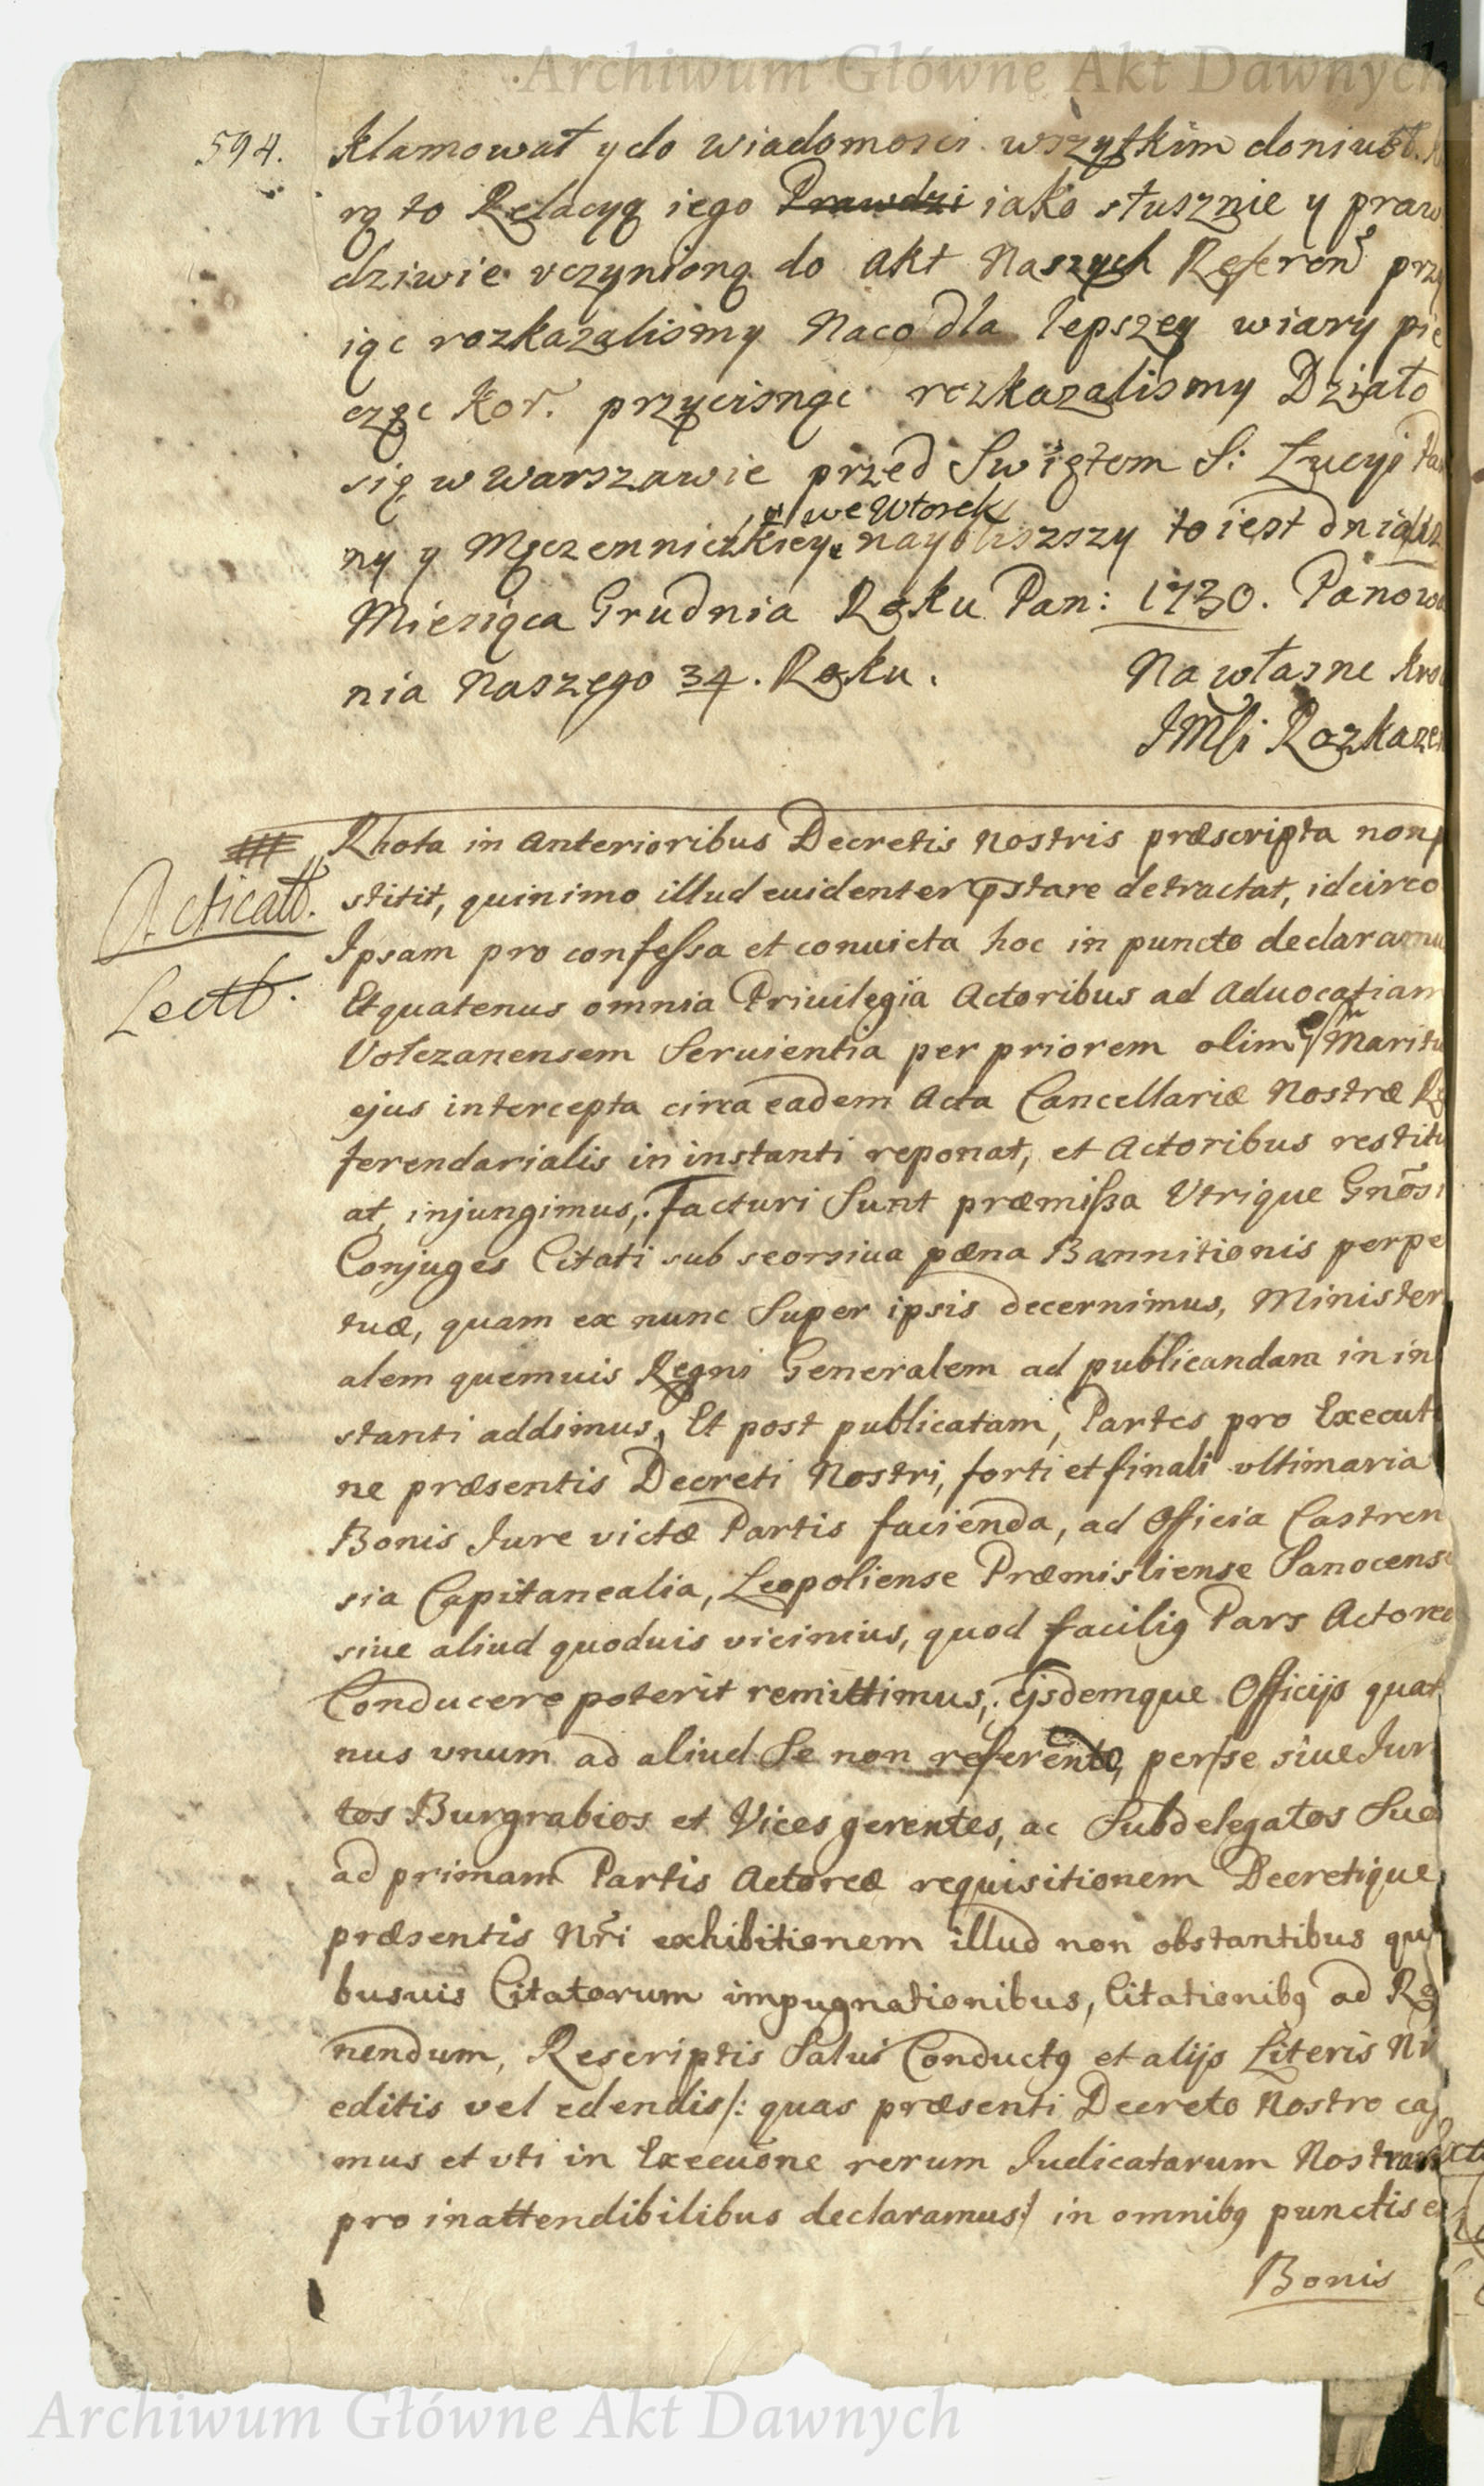 Archiwum Główne Akt Dawnych
594. klamował y do wiadomosci wszytkim doniusł.
rą to Relacyą iego Prawdzi iako słusznie y praw
dziwie vczynioną do akt Naszych Referen przy
iąc rozkazalismy Naco dla lepszey wiary pie
częc Kor. przycisnąc rozkazalismy Działo
się w Warszawie przed Swiętem S: Lucyi Pan
we Wtorek
ny y Męczenniczkiey nayblizszy to iest dnia
Miesiąca Grudnia Roku Pan: 1730. Panowa
nia Naszego 34. Roku.
Na własne kro
JMſi Rozkazen
Rhota in Anterioribus Decretis Nostris præscripta non p
Acticatt.
stitit, quinimo illud euidenter pstare detractat, idcirco
Ipsam pro confeſsa et conuicta hoc in puncto declaramu
Lectt.
Et quatenus omnia Priuilegia Actoribus ad Aduocatiam
Vołczanensem Seruientia per priorem olim Maritu
ejus intercepta circa eadem Acta Cancellariæ Nostræ Re
ferendarialis in instanti reponat, et Actoribus restitu
at, injungimus, Facturi Sunt præmiſsa Vtrique Gnōsi
Conjuges Citati sub seorsiua pæna Bannitionis perpe
tuæ, quam ex nunc Super ipsis decernimus, Minister
alem quemuis Regni Generalem ad publicandam in in
stanti addimus, Et post publicatam, Partes pro Execut
ne præsentis Decreti Nostri, forti et finali vltimaria
Bonis Jure victæ Partis facienda, ad Officia Castren
sia Capitanealia, Leopoliense Præmisliense Sanocens
siue aliud quoduis vicinius, quod facilig Pars Actorea
Conducere poterit remittimus, ejsdemque Officijs quat
nus vnum ad aliud Se non referendo, per se siue Jur
tos Burgrabios et Vices gerentes, ac Subdelegatos Suo
ad primam Partis Actoreæ requisitionem Decretique
præsentis Nr̃i exhibitionem illud non obstantibus qui
busuis Citatorum impugnationibus, Citationibg ad Re
nendum, Rescriptis Salui Conductg et alijs Literis N
editis vel edendis/: quas præsenti Decreto Nostro caſ
mus et vti in Execuõne rerum Judicatarum Nostrar
pro inattendibilibus declaramus:/ in omnibg punctis e
Bonis
Archiwum Główne Akt Dawnych